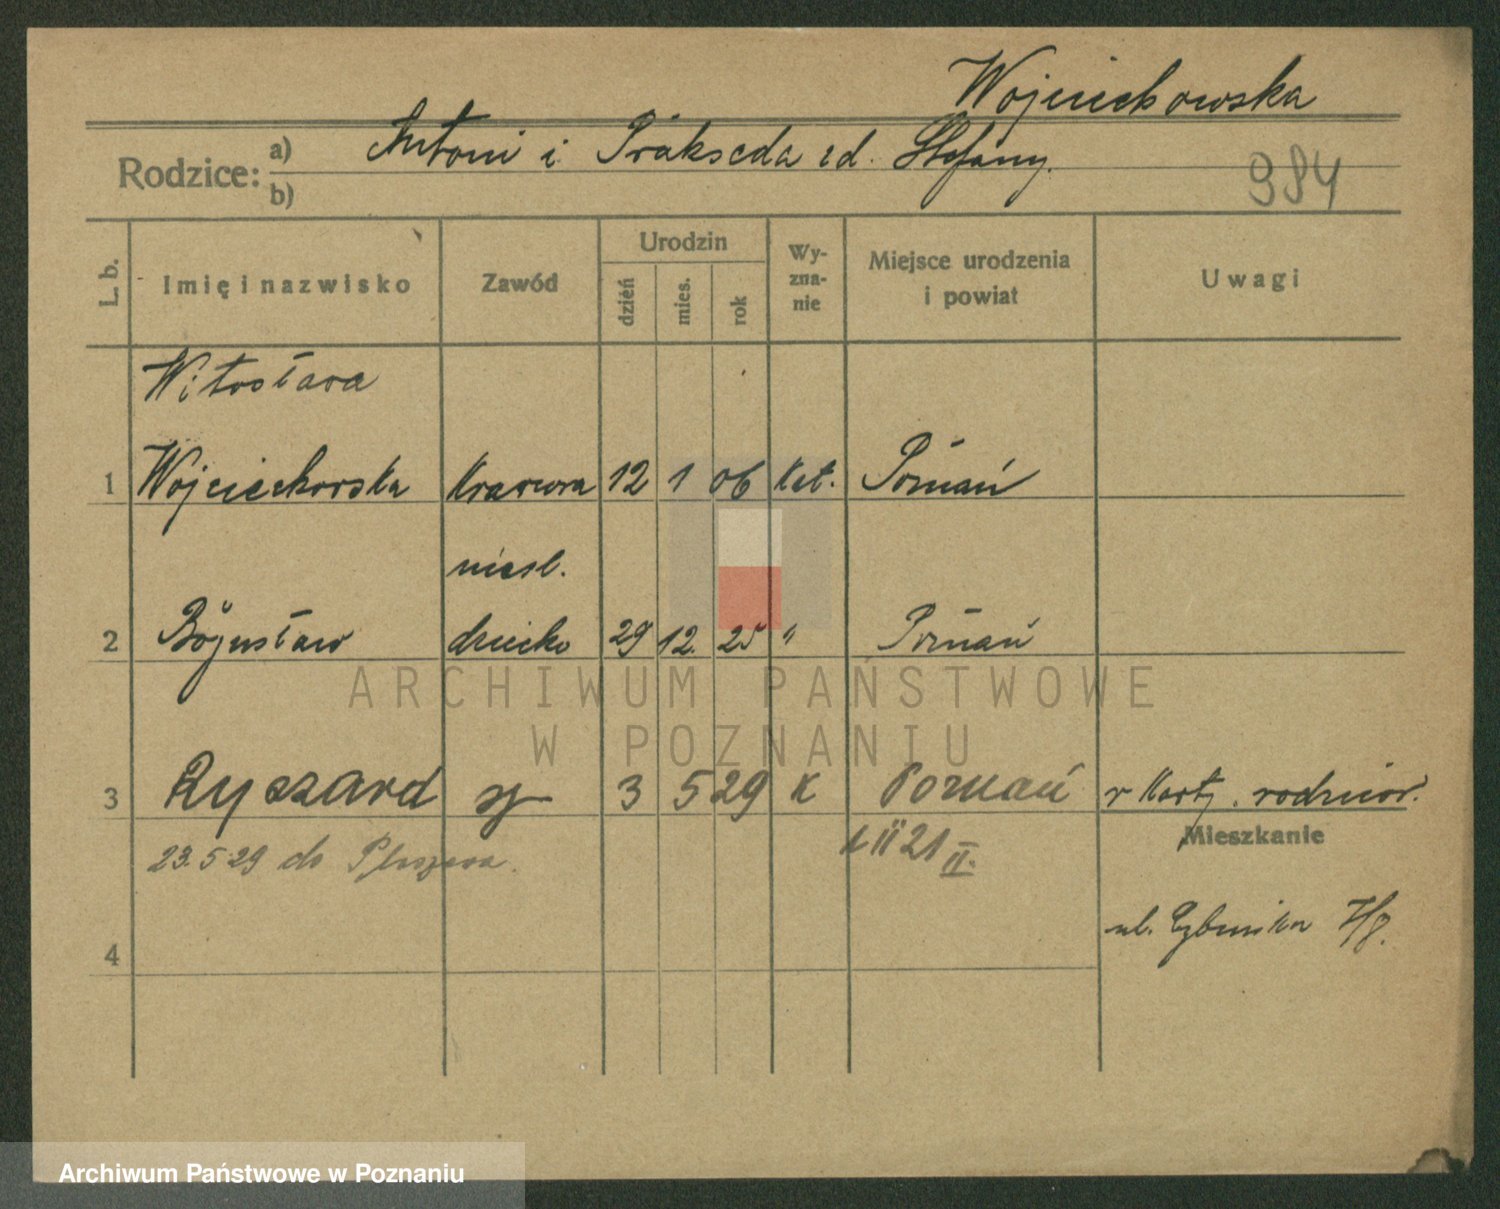 Wojciechowska
Rodzice: a) Antoni i Prakseda zd. Stefany.
b)
984
L. b. Imię i nazwisko Zawód Urodzin dzień mies. rok Wy-zna-nie Miejsce urodzenia i powiat Uwagi
Witosława
1 Wojciechowska Krawcowa 12 1 06 Kat. Poznań
nieśl.
2 Bogusław dziecko 29 12. 25 " Poznań
3 Ryszard sy 3 5 29 K Poznań v Karty rodzicow.
Mieszkanie
23.5 29 do Pleszewa.
21 II.
ul. 7/8.
4
ARCHIWUM PAŃSTWOWE
W POZNANIU
Archiwum Państwowe w Poznaniu